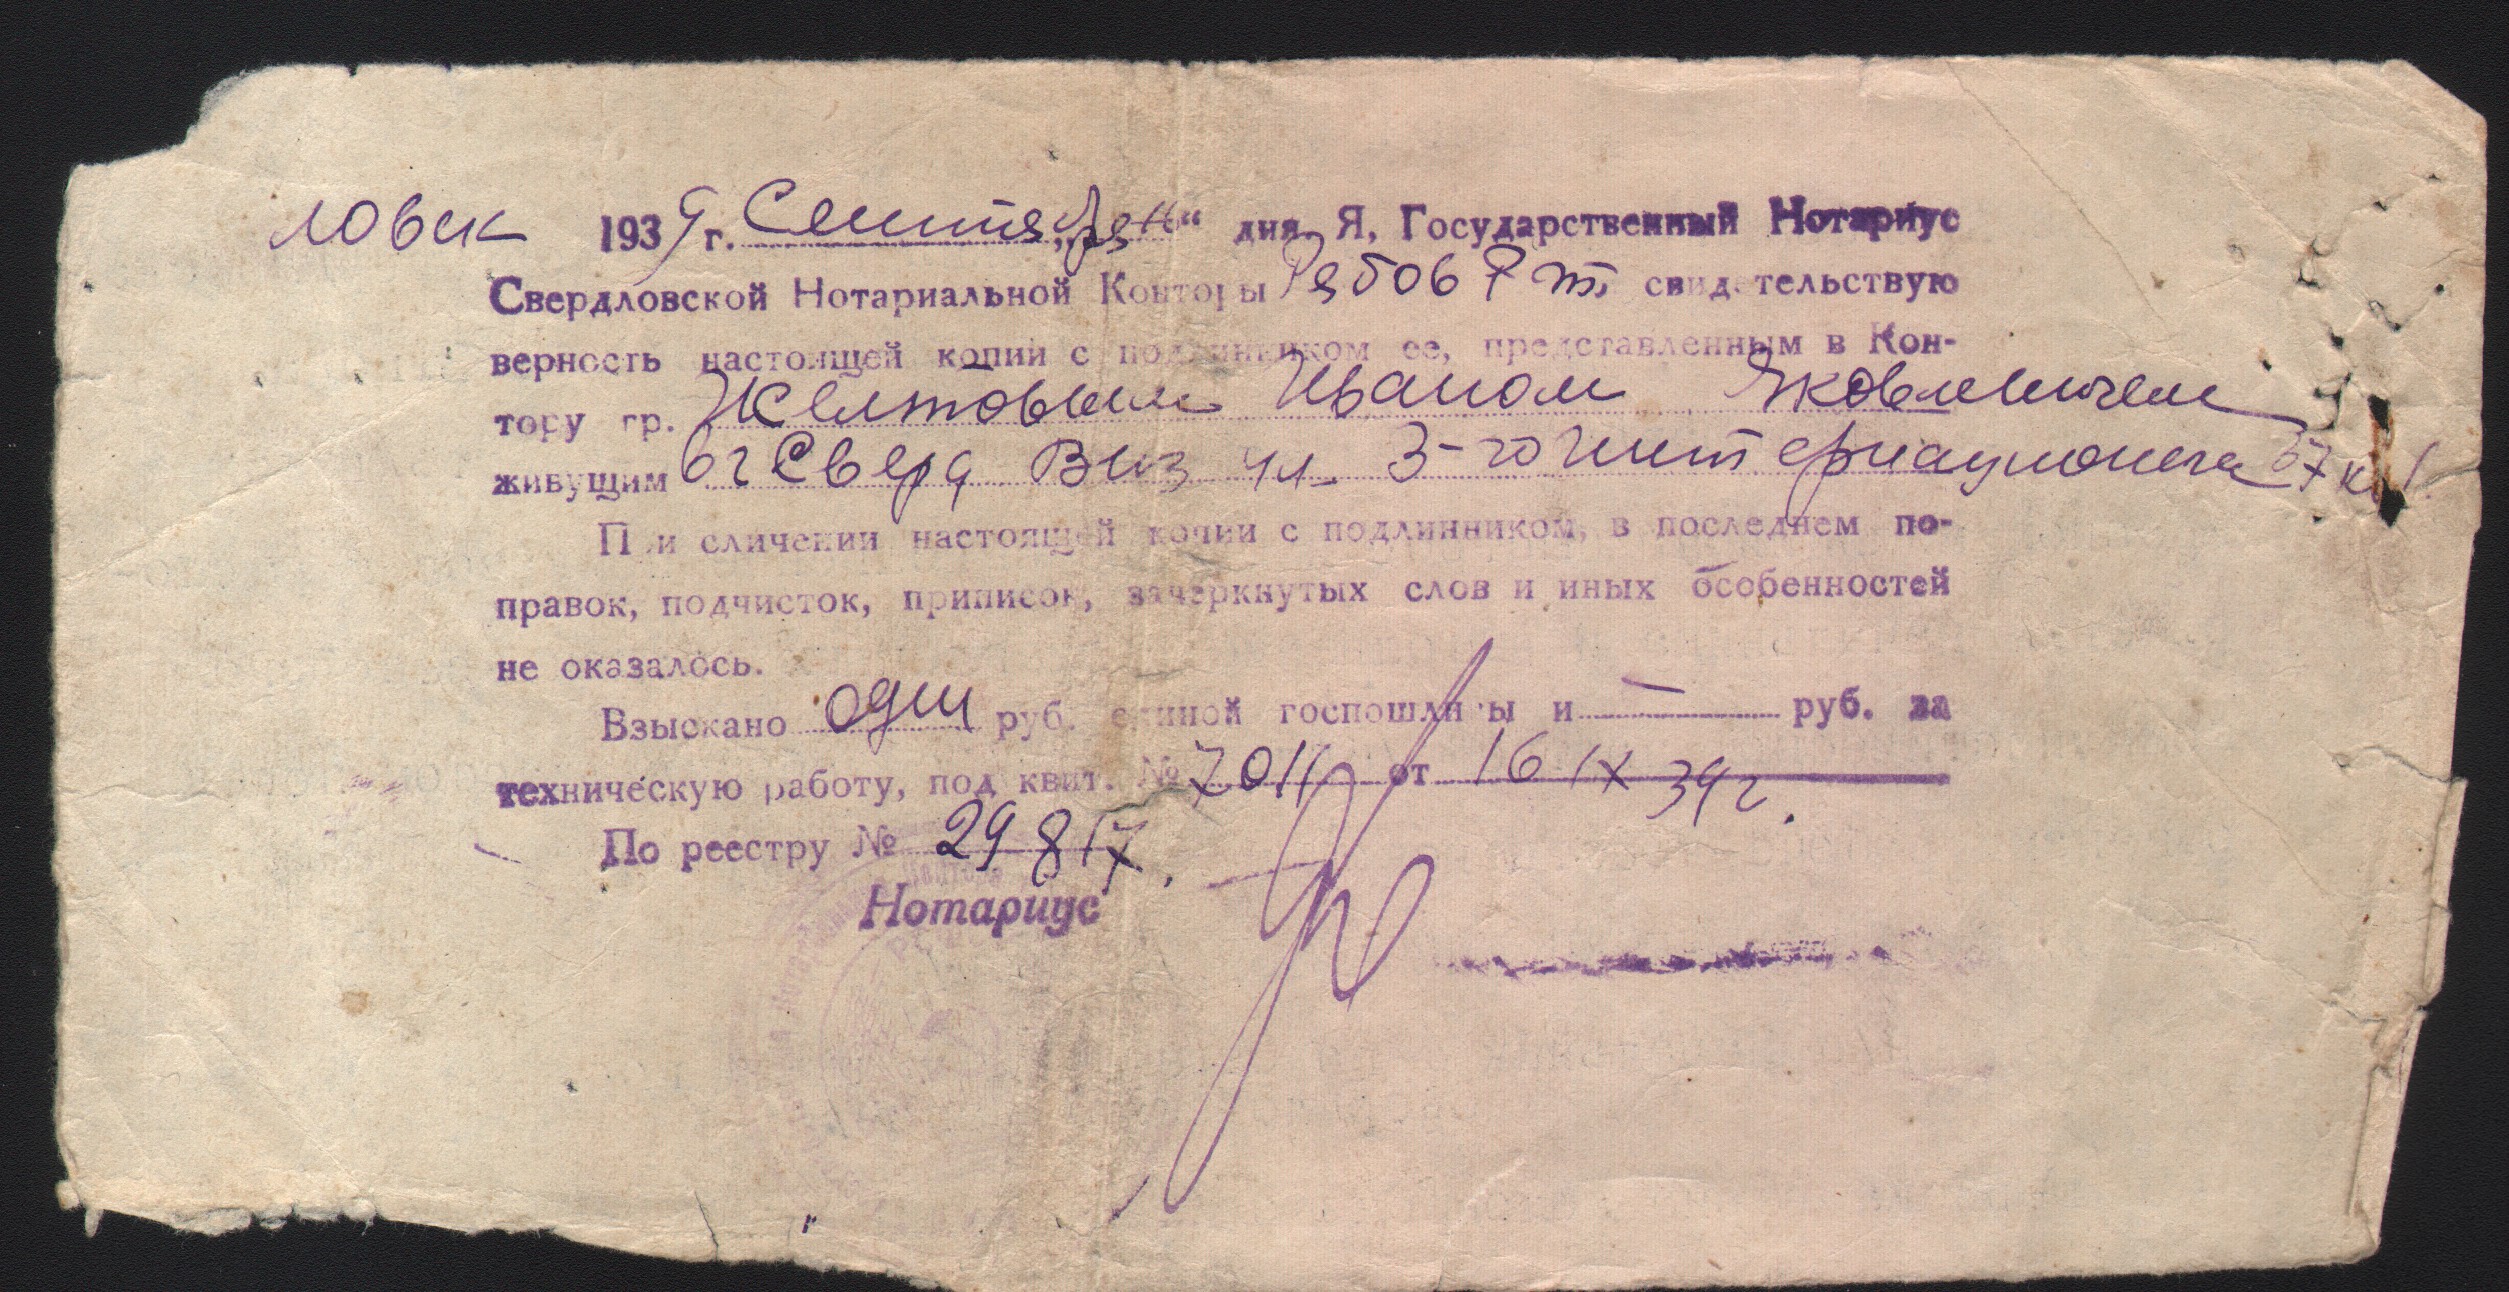 ловск 1939 г. Сентября „16“ дня. Я, Государственный Нотариус
Свердловской Нотариальной Конторы Рябов свидетельствую
верность настоящей копии с подлинником ее, представленным в Кон-
тору гр. Желтовым Иваном Яковлевичем
живущим в г Сверд Виз ул. 3-го интернационала 67 кв 1
При сличении настоящей копии с подлинником, в последнем по-
правок, подчисток, приписок, зачеркнутых слов и иных особенностей
не оказалось.
Взыскано один руб. единой госпошлины и — руб. за
техническую работу, под квит. № 7011 от 16 IX 39 г.
По реестру № 29817.
Нотариус